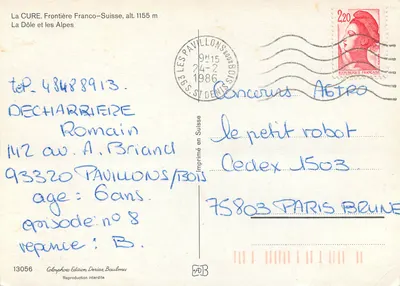 La CURE. Frontière Franco-Suisse, alt. 1155 m
La Dôle et les Alpes
tel. 48488913.
DECHARRIERE
Romain
142 av. A. Briand
93320 PAVILLONS/BOIS
age : 6 ans.
episode no 8
reponse : B.
13056
Reproduction interdite
Imprimé en Suisse
93 LES PAVILLONS SOUS BOIS
9H15
24-2
1986
S. ST DENIS
2,20
REPUBLIQUE FRANÇAISE
Concours ASTRO
le petit robot
Cedex 1503
75803 PARIS BRUNE